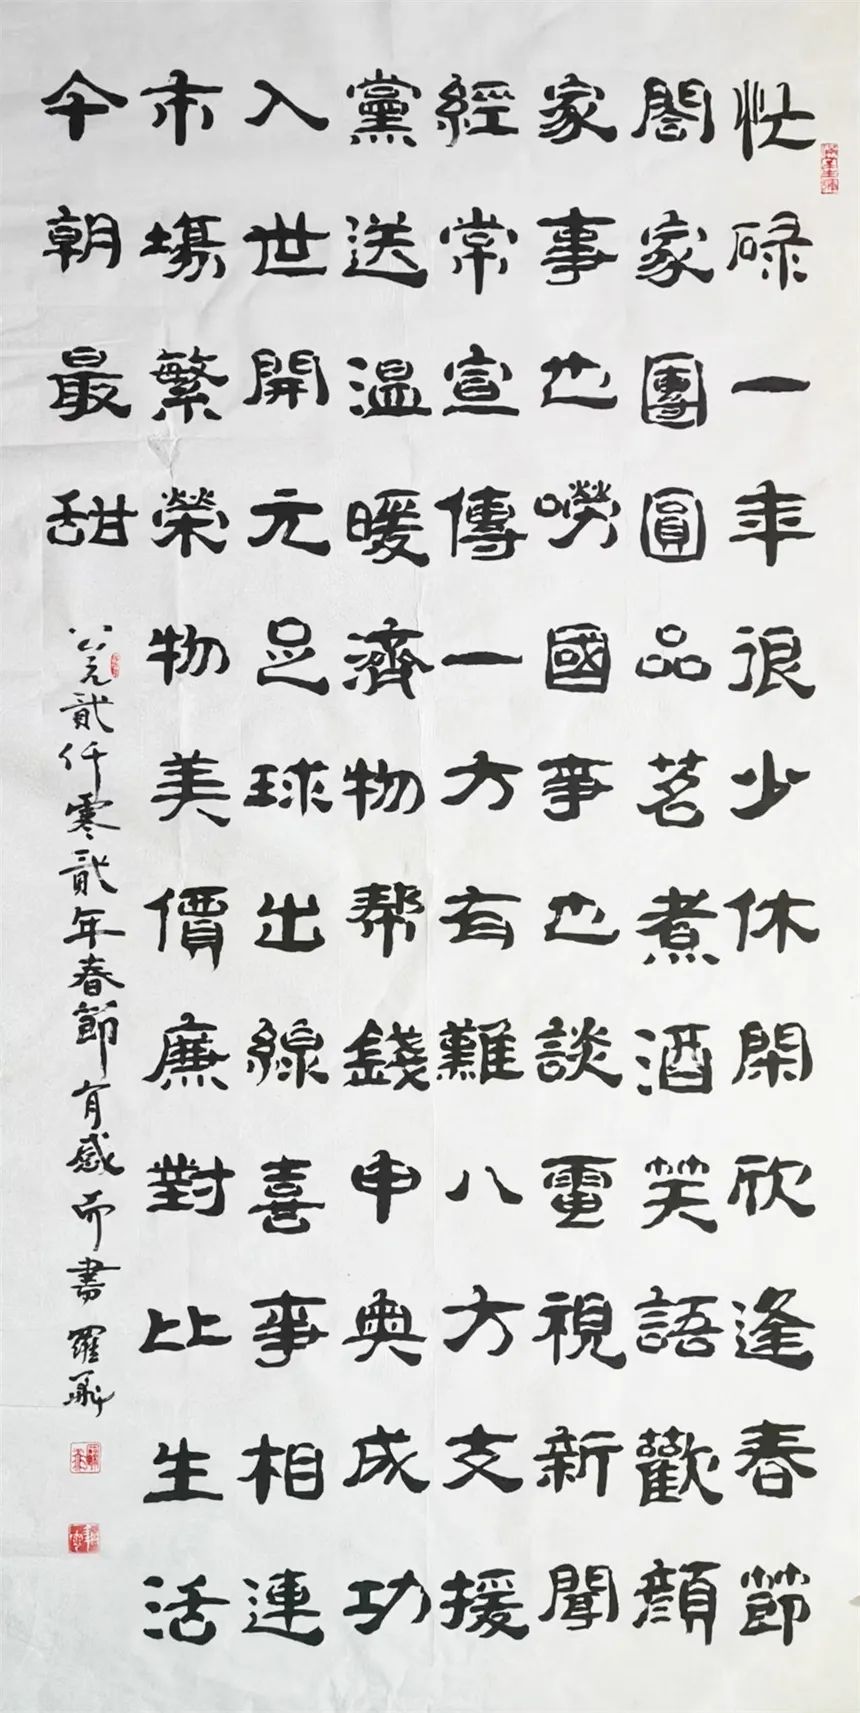 忙碌一年很少休閑欣逢春節
閤家團圓品茗煮酒笑語歡顔
家事也嘮國事也談電視新聞
經常宣傳一方有難八方支援
黨送温暖濟物帮錢申奥成功
入世開元足球出線喜事相連
市場繁榮物美價廉對比生活
今朝最甜
公元貳仟零貳年春節有感而書 羅